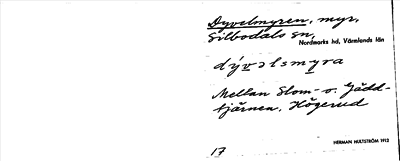 Dyvelmyren, myr,
Silbodals sn,
Nordmarks hd, Värmlands län
dývəlsmyra
Mellan Slom- o. Gädd-
tjärnen, Högerud
17
HERMAN HULTSTRÖM 1913